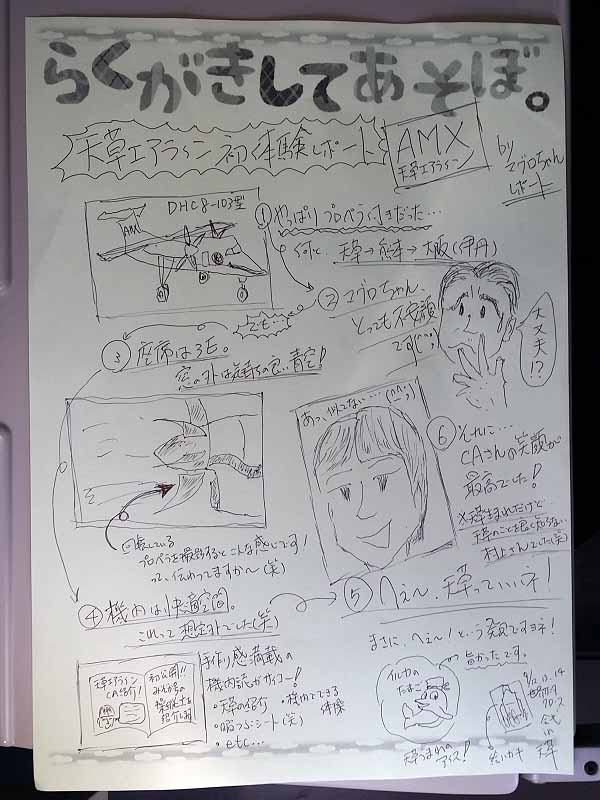 らくがきしてあそぼ。
天草エアライン初体験レポート
AMX
天草エアライン
by
マグロちゃん
レポート
DHC8-103型
AMX
① やっぱりプロペラ付きだった…
天草→熊本→大阪(伊丹)
② マグロちゃん、
とっても不安顔
です(^^;)
大丈夫!?
でも…
③ 座席は3E。
窓の外は気持ちの良い青空!
回転している
プロペラを撮影するとこんな感じです!
って、伝わってますか〜(笑)
④ 機内は快適空間。
これって想定外でした(笑)
天草エアライン
CA紹介!
初公開!!
みぞか号の
操縦士を
紹介し
手作り感満載の
機内誌がサイコー!
・天草の紹介
・機内でできる
体操
・暇つぶシート(笑)
・etc…
あっ、似てない…(^^;)
⑥ それに…
CAさんの笑顔が
最高でした!
※天草生まれだけど…
天草のことを良く知らない
村上さんでした(笑)
⑤ へぇ〜、天草っていいネ!
まさに、へぇ〜!という発見ですヨネ!
旨かったです。
イルカの
たまご
天草うまれの
アイス!
生いガキ
in
天草